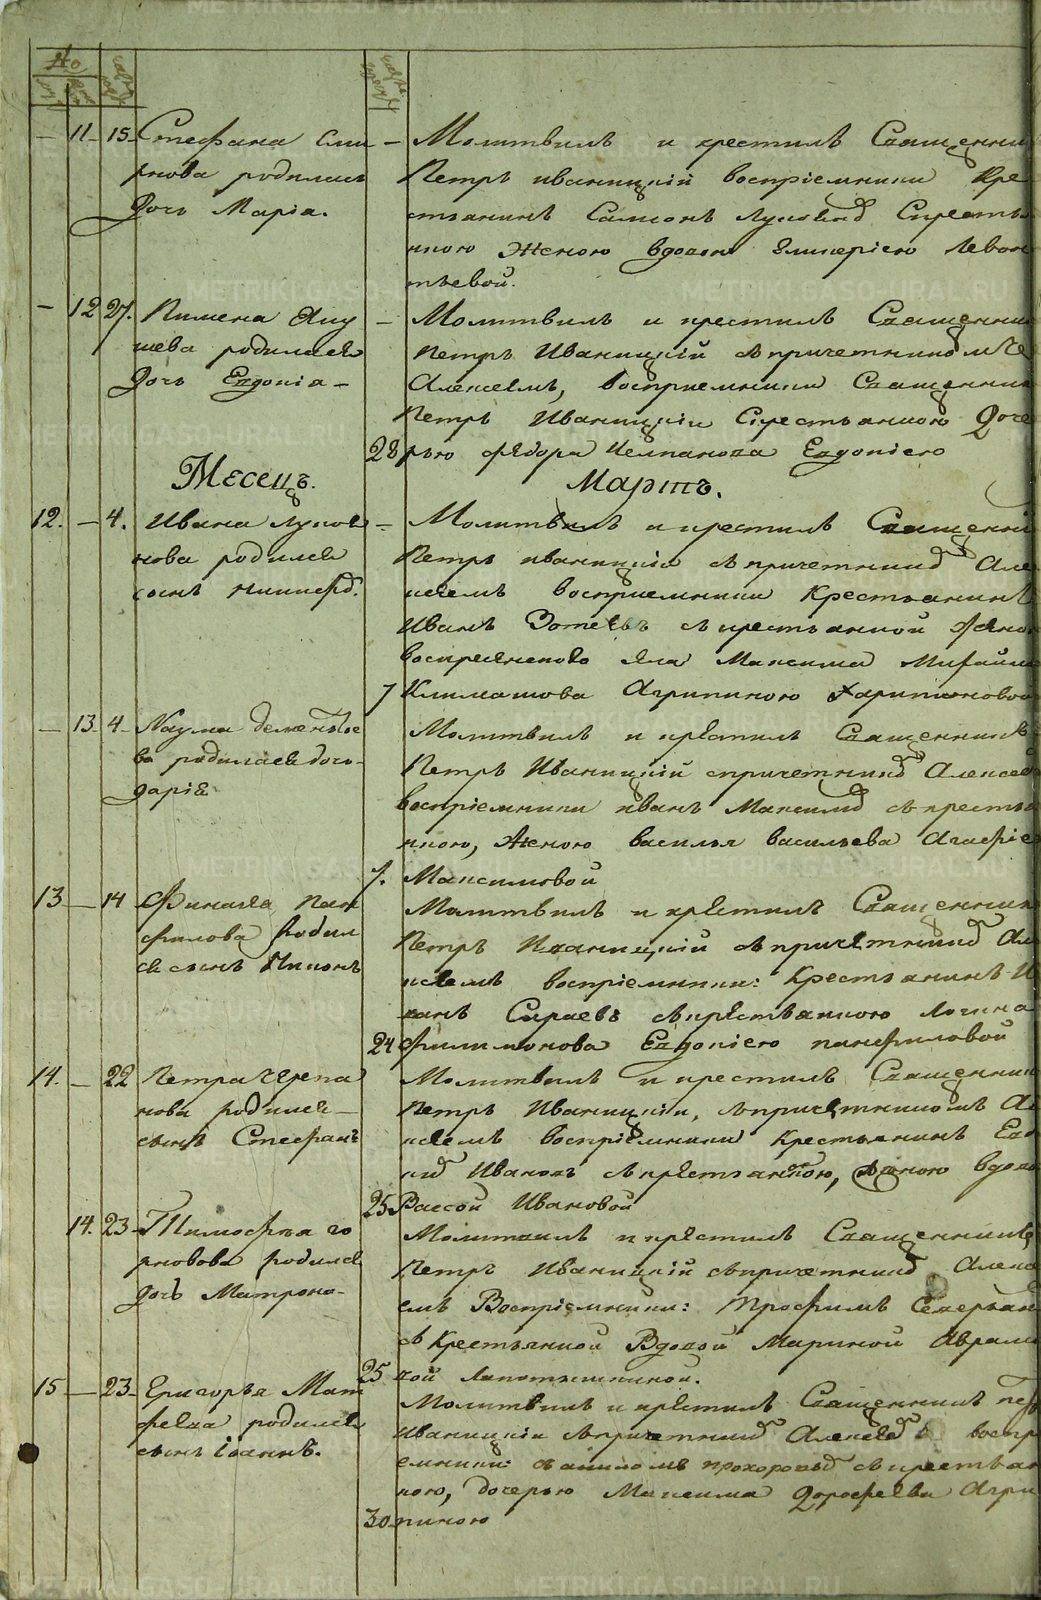 METRIKI.GASO-URAL.RU
№
11 15 Стефана Сми
рнова родилась
Дочь Марія.
Молитвилъ и крестилъ Священни
Петръ иваницкій воспріемники Кре
стьянинъ Самсонъ Сиресть
нною Женою вдовою Гликеріею Леван
тьевой.
12 27. Пимена Яку
шева родилась
Дочь Евдокія
Молитвилъ и крестилъ Священни
Петръ Иваницкій съ причетникомъ
Алексеемъ, восприемники Священни
Петръ Иваницкіи Скрестьянкою Доче
28 рью федора Евдокіею
Месецъ. Мартъ.
12. 4. Ивана Лупов
нова родился
сынъ Никифор.
Молитвилъ и крестилъ Священни
Петръ иваницкіи съ причетник Але
ксеемъ восприемники Крестьянинъ
Иванъ Зотеевъ съ крестьянкой Жено
воскресенского села Максима Михайло
7 Климашова Агрипиною Харитоновою
13 4 Наума дементье
ва родилась дочь
дарія
Молитвилъ и крестилъ Священникъ
Петръ Иваницкій спричетник Алексее
воспріемники иванъ Максимов съ кресть
нною, Женою василья васильева Агафіе
7. Максимовой
13 14 Финаева пан
филова родил
ся сынъ Тихонъ
Молитвилъ и крестилъ Священник
Петръ Иваницкій съ причетник Але
ксеемъ воспріемники: Крестьянинъ И
ванъ Сыраевъ съ крестьянкою Логина
24 филимонова Евдокіею панфиловой
14. 22 Петра Черепа
нова родился
сынъ Стефанъ
Молитвилъ и крестилъ Священник
Петръ Иваницкіи, съ причетникомъ Ал
ксеемъ воспріемники Крестьянинъ Евд
ким Ивановъ съ крестьянкою, женою вдово
25 Вассой Ивановой
14. 23 Тимофея го
рновова родилась
дочь Матрона
Молитвилъ и крестилъ Священникъ
Петръ Иваницкій съ причетник Алекс
емъ Воспріемники: Трофимъ Северьян
съ Крестьянкой Вдовой Мариной Аврам
25 вой Лапотышкиной.
15 23 Григорья Мат
феева родился
сынъ Іоаннъ.
Молитвилъ и крестилъ Священникъ петр
иваницкіи съ причетник Алексеев воспр
емники: самиломъ прохоровым съ крестьян
кою, дочерью Максима Дорофеева Агри
30 пиною
METRIKI.GASO-URAL.RU